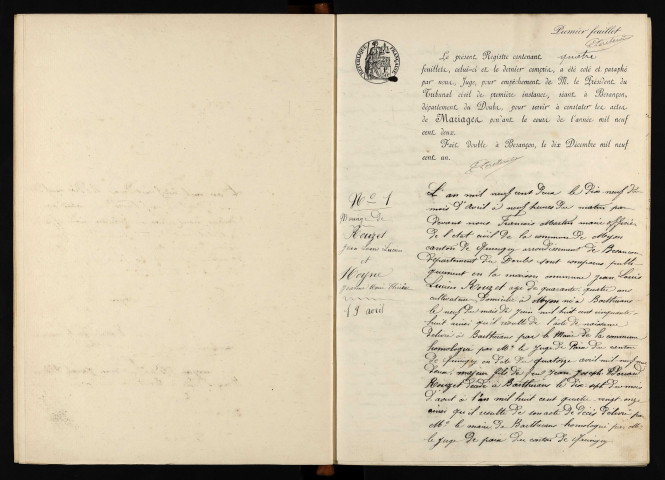 Premier feuillet
RÉPUBLIQUE FRANÇAISE
Le présent Registre contenant quatre
feuillets, celui-ci et le dernier compris, a été coté et paraphé
par nous, Juge, pour empêchement de M. le Président du
Tribunal civil de première instance, séant à Besançon,
département du Doubs, pour servir à constater les actes
de Mariages pendant le cours de l'année mil neuf
cent deux.
Fait double à Besançon, le dix Décembre mil neuf
cent un.
No 1
Mariage de
Rouget
Jean Louis Lucien
et
19 avril
L'an mil neuf cent deux le dix neuf du
mois d'Avril à neuf heures du matin par
devant nous François maire officier
de l'état civil de la commune de
canton de Quingey arrondissement de Besançon
département du Doubs sont comparus publi
quement en la maison commune Jean Louis
Lucien Rouget age de quarante quatre ans
cultivateur, domicilié à né à Bartherans
le neuf du mois de Juin mil huit cent cinquante
huit ainsi qu'il résulte de l'acte de naissance
délivré à Bartherans par le Maire de la commune
homologué par Mr le Juge de Paix du canton
de Quingey en date du quatorze avril mil neuf cent
deux, majeur fils de feu Jean Joseph
Rouget décédé à Bartherans le dix sept du mois
d'aout à l'an mil huit cent quatre vingt onze
ainsi qu'il resulte de son acte de décès délivré par
Mr le maire de Bartherans homologué par Mr
le Juge de paix du canton de Quingey